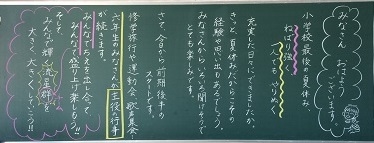 みなさん おはよう
ございます!
小学校最後の夏休み
ねばり強く
とてもやりぬく
充実した日々にできましたか。
きっと、夏休みだからこその
経験や思い出もあるでしょう。
みなさんからいろいろ聞けそうで
とても楽しみです。
さて、今日から前期後半の
スタートです。
修学旅行や運動会、歌声集会…
六年生のみなさんが主役の行事
が続きます。
みんなでちえを出し合って
みんなで盛り上げ楽しもう!!
そして
みんな輝く流星群を
大きく、大きくしていこう!!